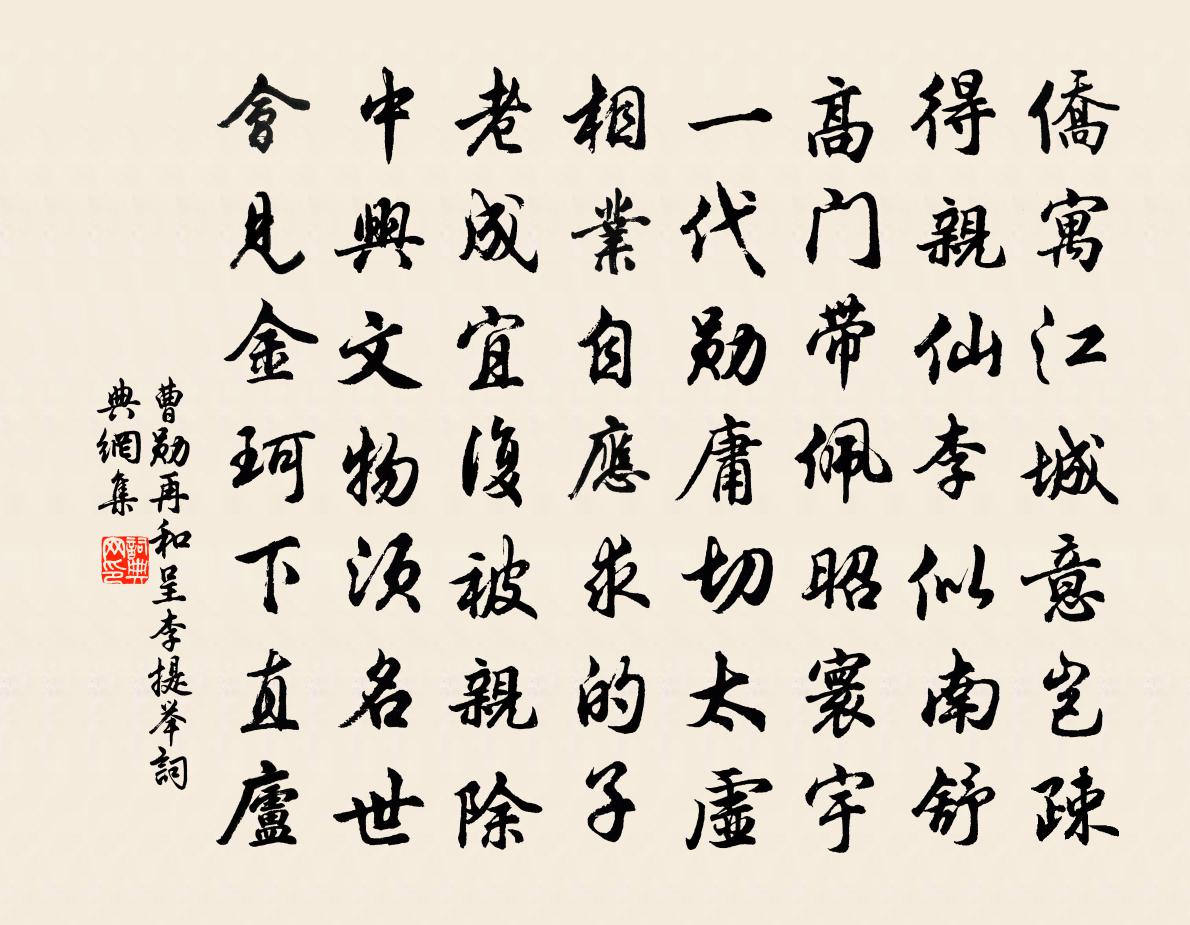 僑寓江城意豈疎
得親仙李似南舒
高门帶佩昭寰宇
一代勋庸切太虛
相業自應求的子
老成宜復被親除
中興文物須名世
會見金珂下直廬
曹勋再和呈李提举詞
典網集
詞典網印